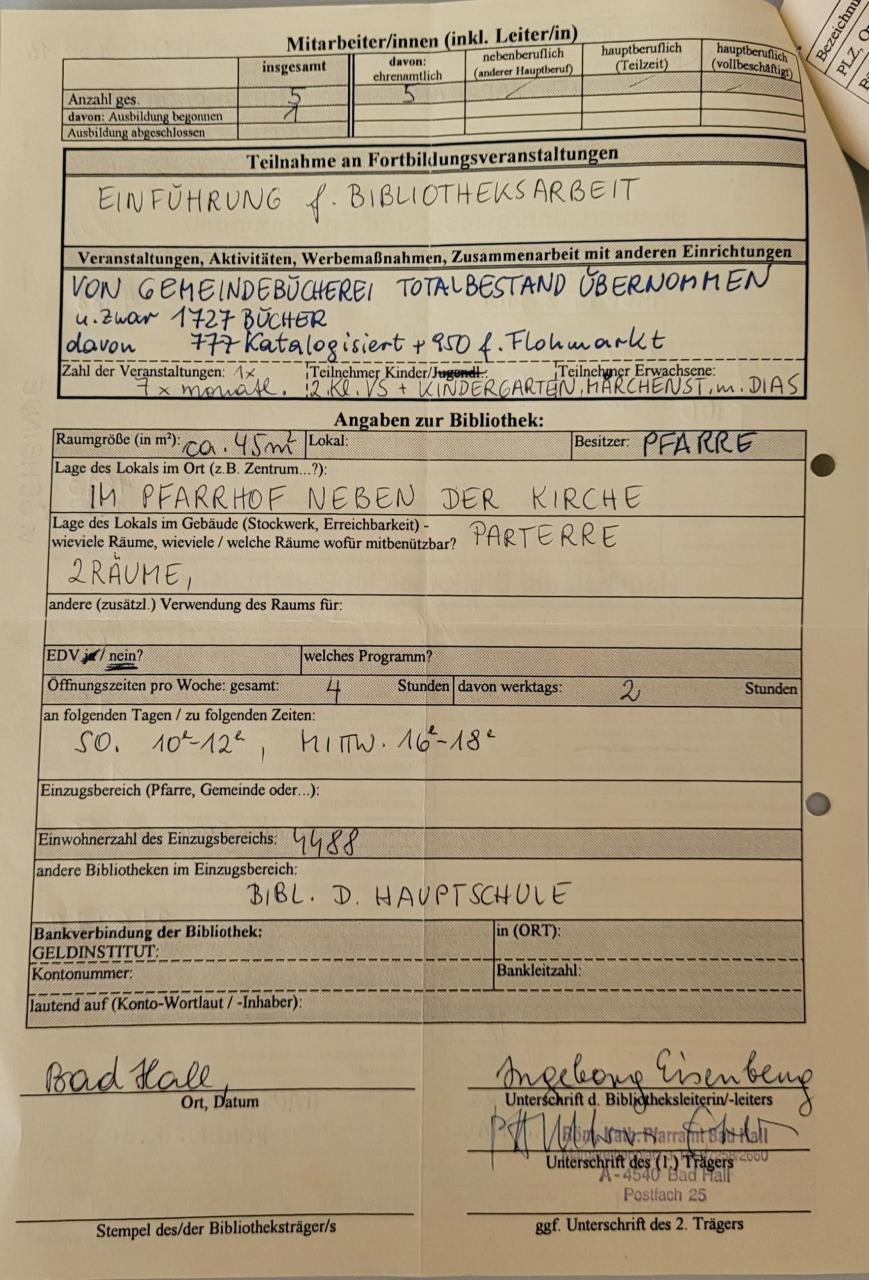 Bezeichnu
PLZ, O
Mitarbeiter/innen (inkl. Leiter/in)
insgesamt davon: ehrenamtlich nebenberuflich (anderer Hauptberuf) hauptberuflich (Teilzeit) hauptberuflich (vollbeschäftigt)
Anzahl ges. 5 5 / / /
davon: Ausbildung begonnen 1
Ausbildung abgeschlossen
Teilnahme an Fortbildungsveranstaltungen
EINFÜHRUNG f. BIBLIOTHEKSARBEIT
Veranstaltungen, Aktivitäten, Werbemaßnahmen, Zusammenarbeit mit anderen Einrichtungen
VON GEMEINDEBÜCHEREI TOTALBESTAND ÜBERNOMMEN
u. zwar 1727 BÜCHER
davon 777 Katalogisiert + 950 f. Flohmarkt
Zahl der Veranstaltungen: 1x Teilnehmer Kinder/Jugendl.: Teilnehmer Erwachsene:
7 x monatl. 2.Kl. VS + KINDERGARTEN, MÄRCHENST. m. DIAS
Angaben zur Bibliothek:
Raumgröße (in m²): ca. 45m² Lokal: Besitzer: PFARRE
Lage des Lokals im Ort (z.B. Zentrum...?):
IM PFARRHOF NEBEN DER KIRCHE
Lage des Lokals im Gebäude (Stockwerk, Erreichbarkeit) -
wieviele Räume, wieviele / welche Räume wofür mitbenützbar? PARTERRE
2 RÄUME,
andere (zusätzl.) Verwendung des Raums für:
EDV ja / nein? welches Programm?
Öffnungszeiten pro Woche: gesamt: 4 Stunden davon werktags: 2 Stunden
an folgenden Tagen / zu folgenden Zeiten:
SO. 10h-12h, MITTW. 16h-18h
Einzugsbereich (Pfarre, Gemeinde oder...):
Einwohnerzahl des Einzugsbereichs: 4488
andere Bibliotheken im Einzugsbereich:
BIBL. D. HAUPTSCHULE
Bankverbindung der Bibliothek: in (ORT):
GELDINSTITUT:
Kontonummer: Bankleitzahl:
lautend auf (Konto-Wortlaut / -Inhaber):
Bad Hall, Ingeborg Eisenberg
Ort, Datum Unterschrift d. Bibliotheksleiterin/-leiters
Röm. kath. Pfarramt Bad Hall
Unterschrift des (1.) Trägers
A-4540 Bad Hall
Postfach 25
Stempel des/der Bibliotheksträger/s ggf. Unterschrift des 2. Trägers